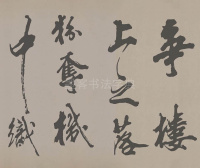 爭樓
上之落
粉奪機
中之織